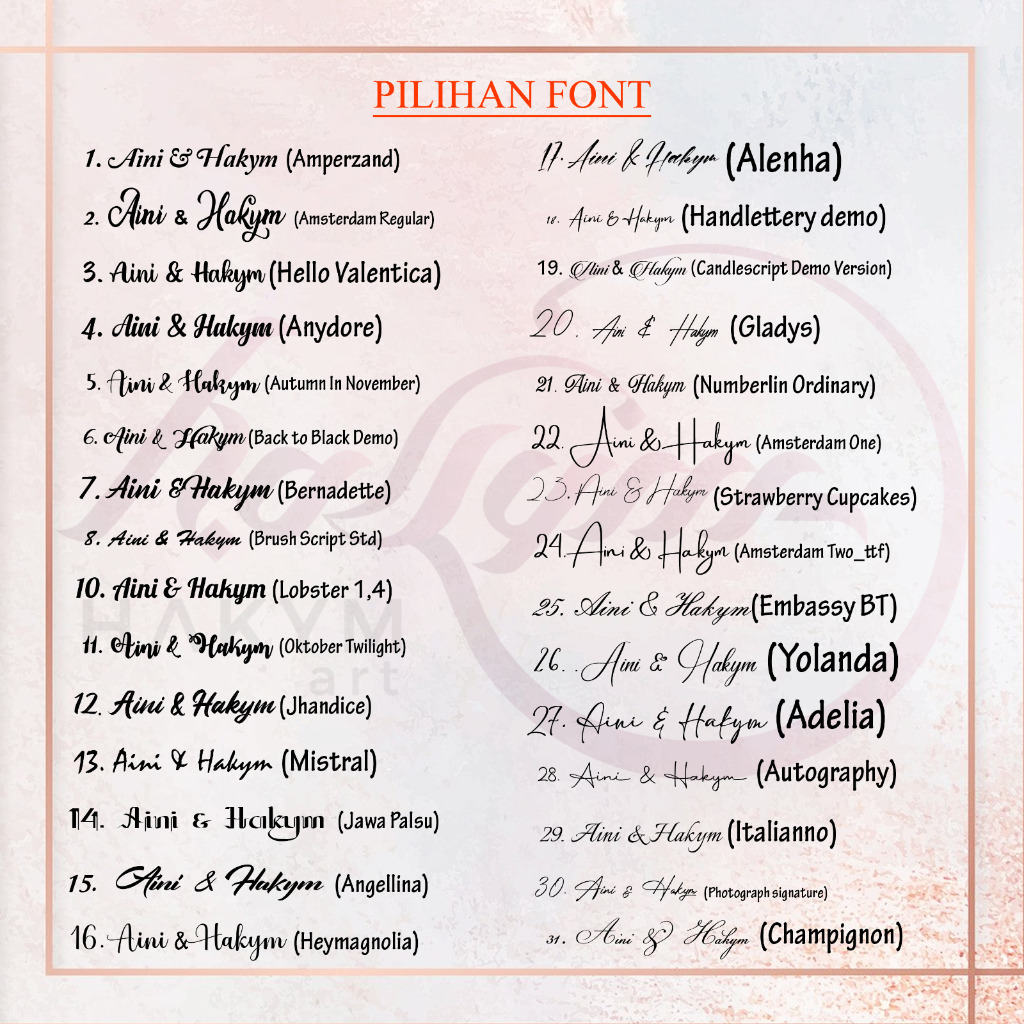 PILIHAN FONT
1. Aini & Hakym (Amperzand)
2. Aini & Hakym (Amsterdam Regular)
3. Aini & Hakym (Hello Valentica)
4. Aini & Hakym (Anydore)
5. Aini & Hakym (Autumn In November)
6. Aini & Hakym (Back to Black Demo)
7. Aini & Hakym (Bernadette)
8. Aini & Hakym (Brush Script Std)
10. Aini & Hakym (Lobster 1,4)
11. Aini & Hakym (Oktober Twilight)
12. Aini & Hakym (Jhandice)
13. Aini & Hakym (Mistral)
14. Aini & Hakym (Jawa Palsu)
15. Aini & Hakym (Angellina)
16. Aini & Hakym (Heymagnolia)
17. Aini & Hakym (Alenha)
18. Aini & Hakym (Handlettery demo)
19. Aini & Hakym (Candlescript Demo Version)
20. Aini & Hakym (Gladys)
21. Aini & Hakym (Numberlin Ordinary)
22. Aini & Hakym (Amsterdam One)
23. Aini & Hakym (Strawberry Cupcakes)
24. Aini & Hakym (Amsterdam Two_ttf)
25. Aini & Hakym (Embassy BT)
26. . Aini & Hakym (Yolanda)
27. Aini & Hakym (Adelia)
28. Aini & Hakym (Autography)
29. Aini & Hakym (Italianno)
30. Aini & Hakym (Photograph signature)
31. Aini & Hakym (Champignon)
HAKYM
art